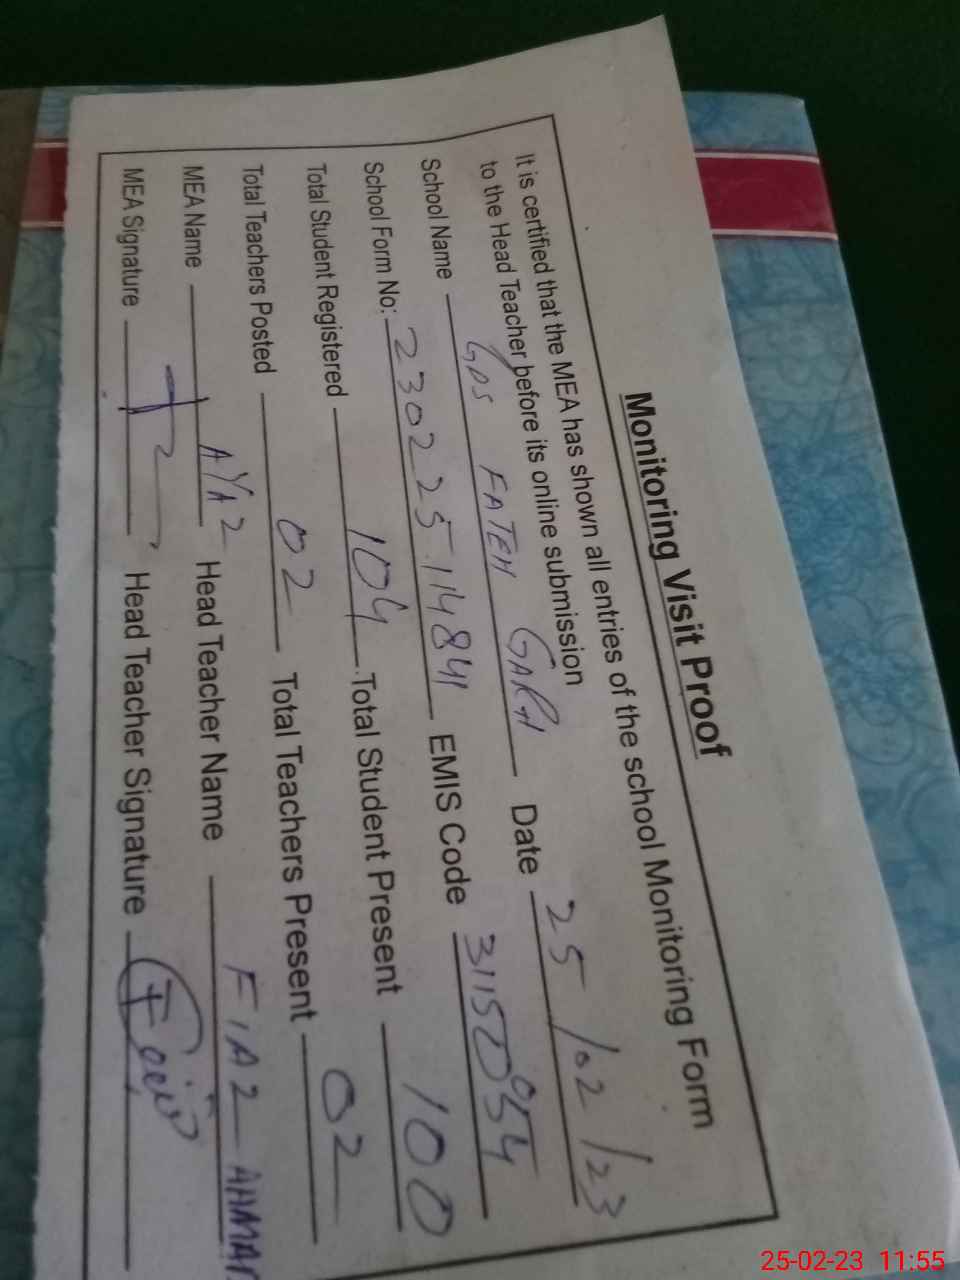 Monitoring Visit Proof
It is certified that the MEA has shown all entries of the school Monitoring Form
to the Head Teacher before its online submission
School Name GPS FATEH GARH Date 25/02/23
School Form No: 230225114841 EMIS Code
Total Student Registered 104 Total Student Present 100
Total Teachers Posted 02 Total Teachers Present 02
MEA Name Head Teacher Name
MEA Signature Head Teacher Signature
25-02-23 11:55